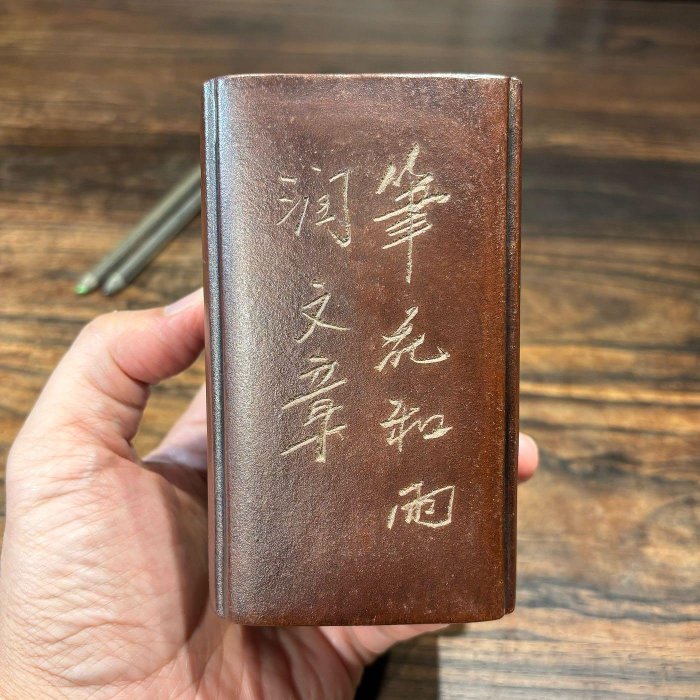 筆花和雨
润文章